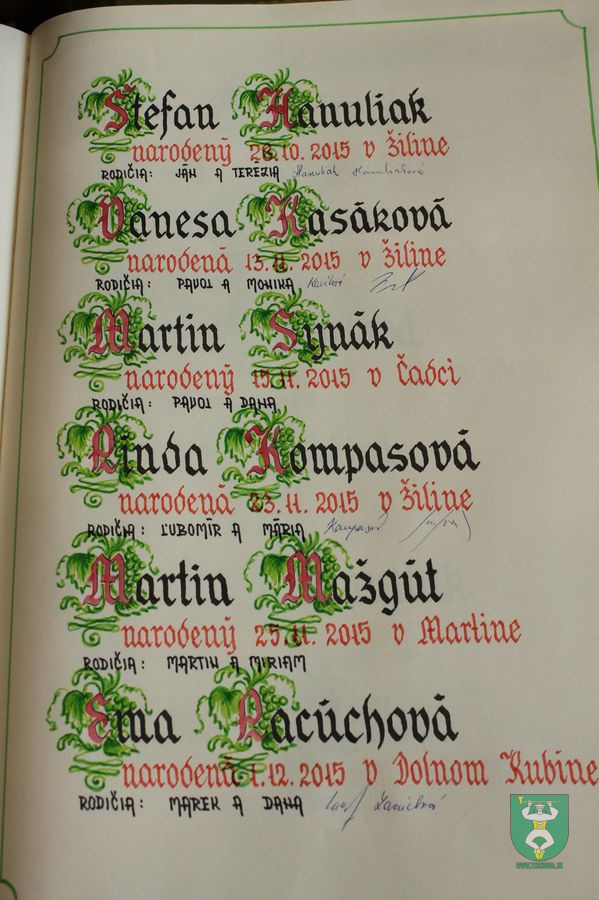 Štefan Hanuliak
narodený 28.10. 2015 v Žiline
RODIČIA: JÁN A TERÉZIA Hanuliak Hanuliaková
Vanesa Kasáková
narodená 13.11. 2015 v Žiline
RODIČIA: PAVOL A MONIKA
Martin Synák
narodený 15.11. 2015 v Čadci
RODIČIA: PAVOL A DANA
Linda Kompasová
narodená 23.11. 2015 v Žiline
RODIČIA: ĽUBOMÍR A MÁRIA
Martin Mažgút
narodený 25.11. 2015 v Martine
RODIČIA: MARTIN A MIRIAM
Ema Lacúchová
narodená 1.12. 2015 v Dolnom Kubíne
RODIČIA: MAREK A DANA
WWW.TERCHOVA.SK